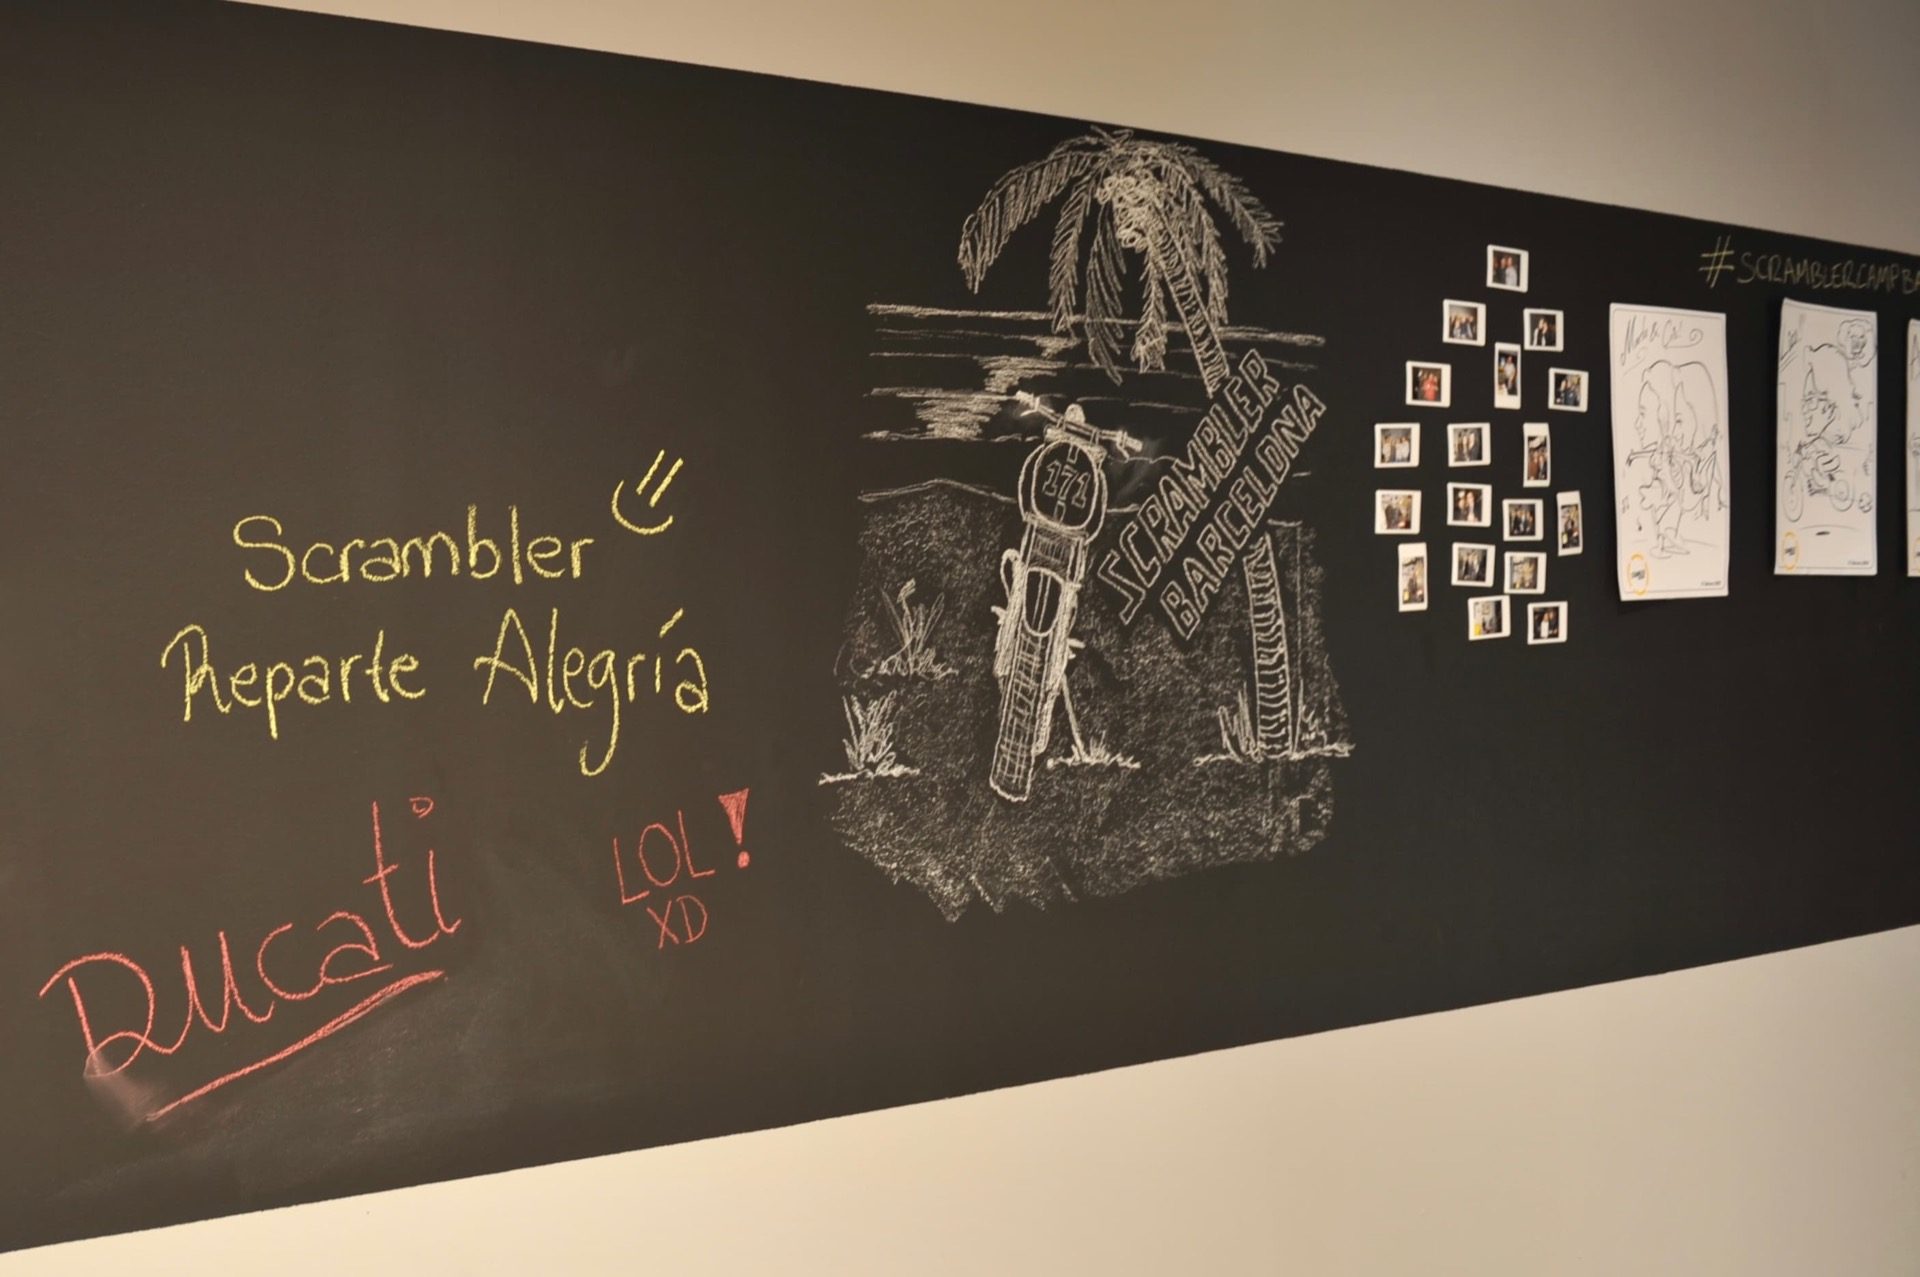 Scrambler
Reparte Alegría
Ducati
LOL!
XD
171
SCRAMBLER
BARCELONA
#SCRAMBLERCAMPBA